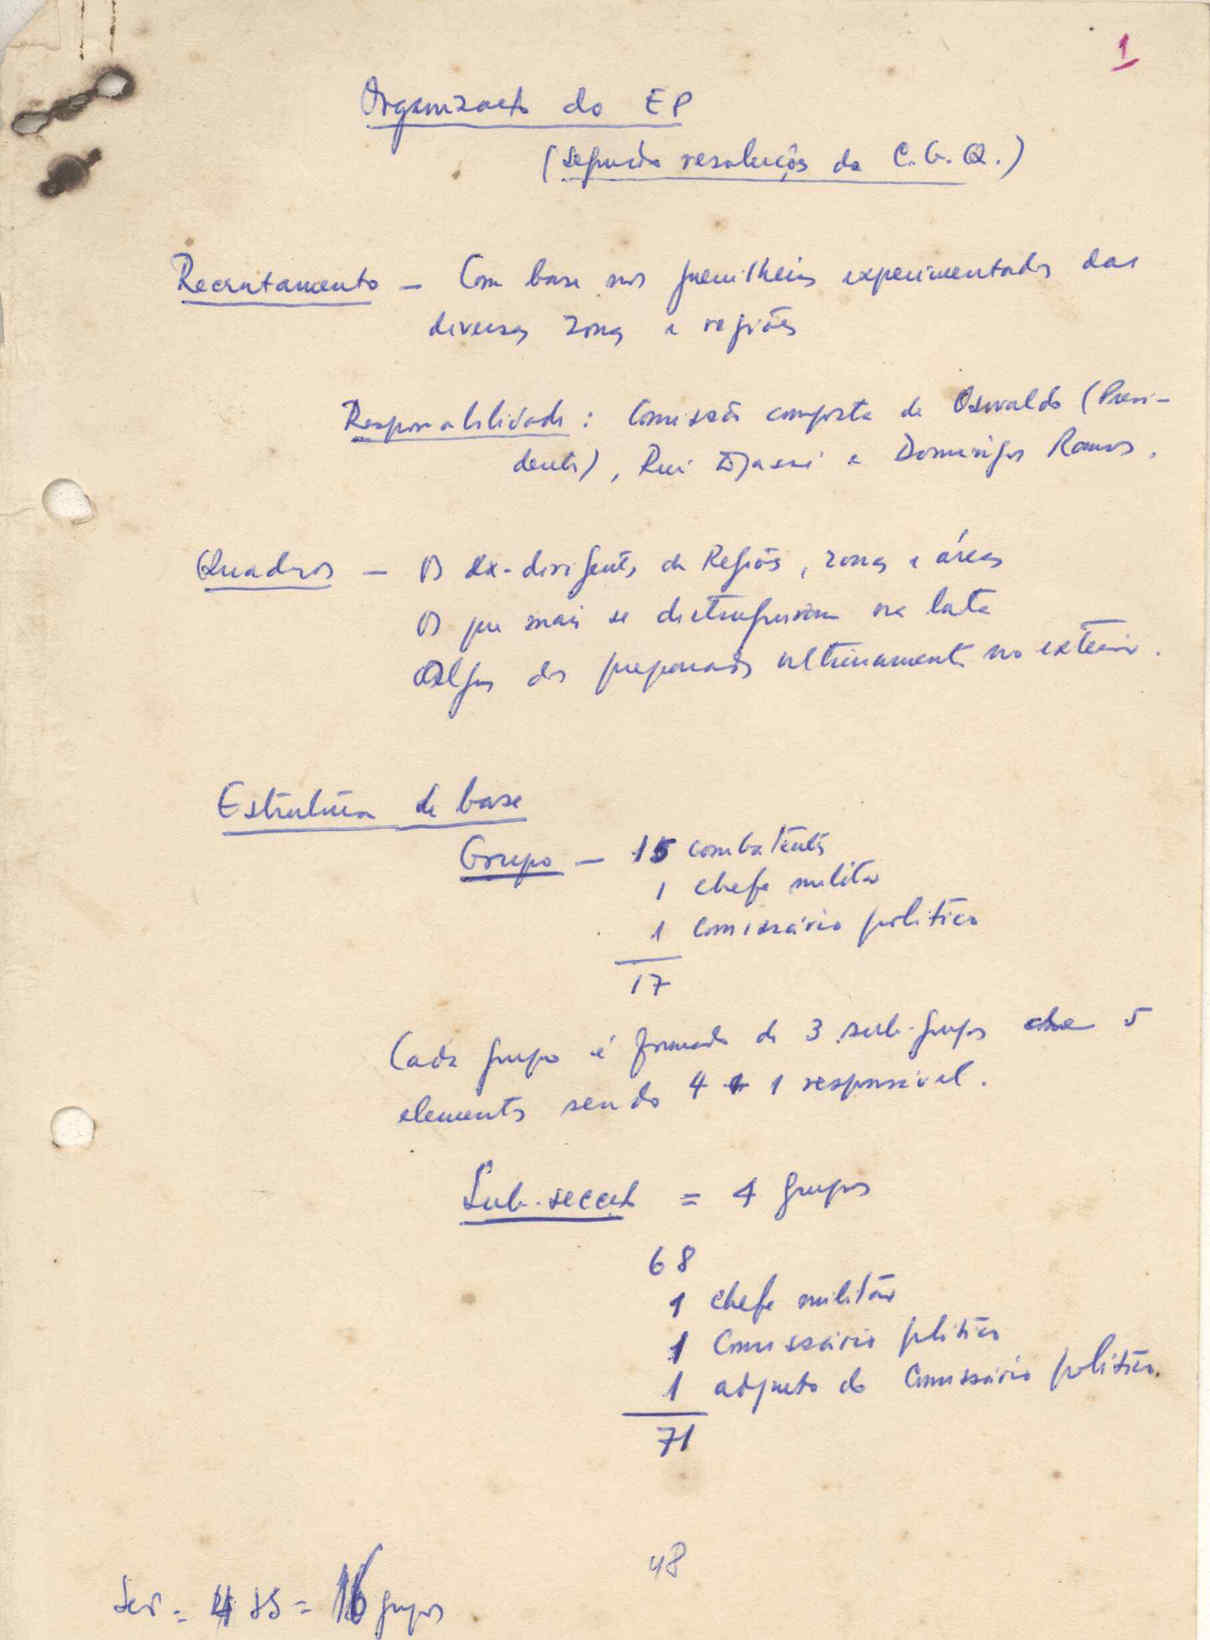 1
Organização do EP
(segundo resoluções da C.G.Q.)
Recrutamento – Com base nos guerrilheiros experimentados das
diversas zonas e regiões
Responsabilidade: Comissão composta de Osvaldo (Presi-
dente), Rui Djassi e Domingos Ramos.
Quadros – Os ex-dirigentes de Regiões, zonas e áreas
Os que mais se distinguiram na luta
Alguns dos preparados ultimamente no exterior.
Estrutura de base
Grupo – 15 combatentes
1 chefe militar
1 comissário político
17
Cada grupo é formado de 3 sub-grupos de 5
elementos sendo 4 + 1 responsável.
Sub-secção = 4 grupos
68
1 chefe militar
1 Comissário político
1 adjunto do Comissário político.
71
48
= 4 SS = 16 grupos